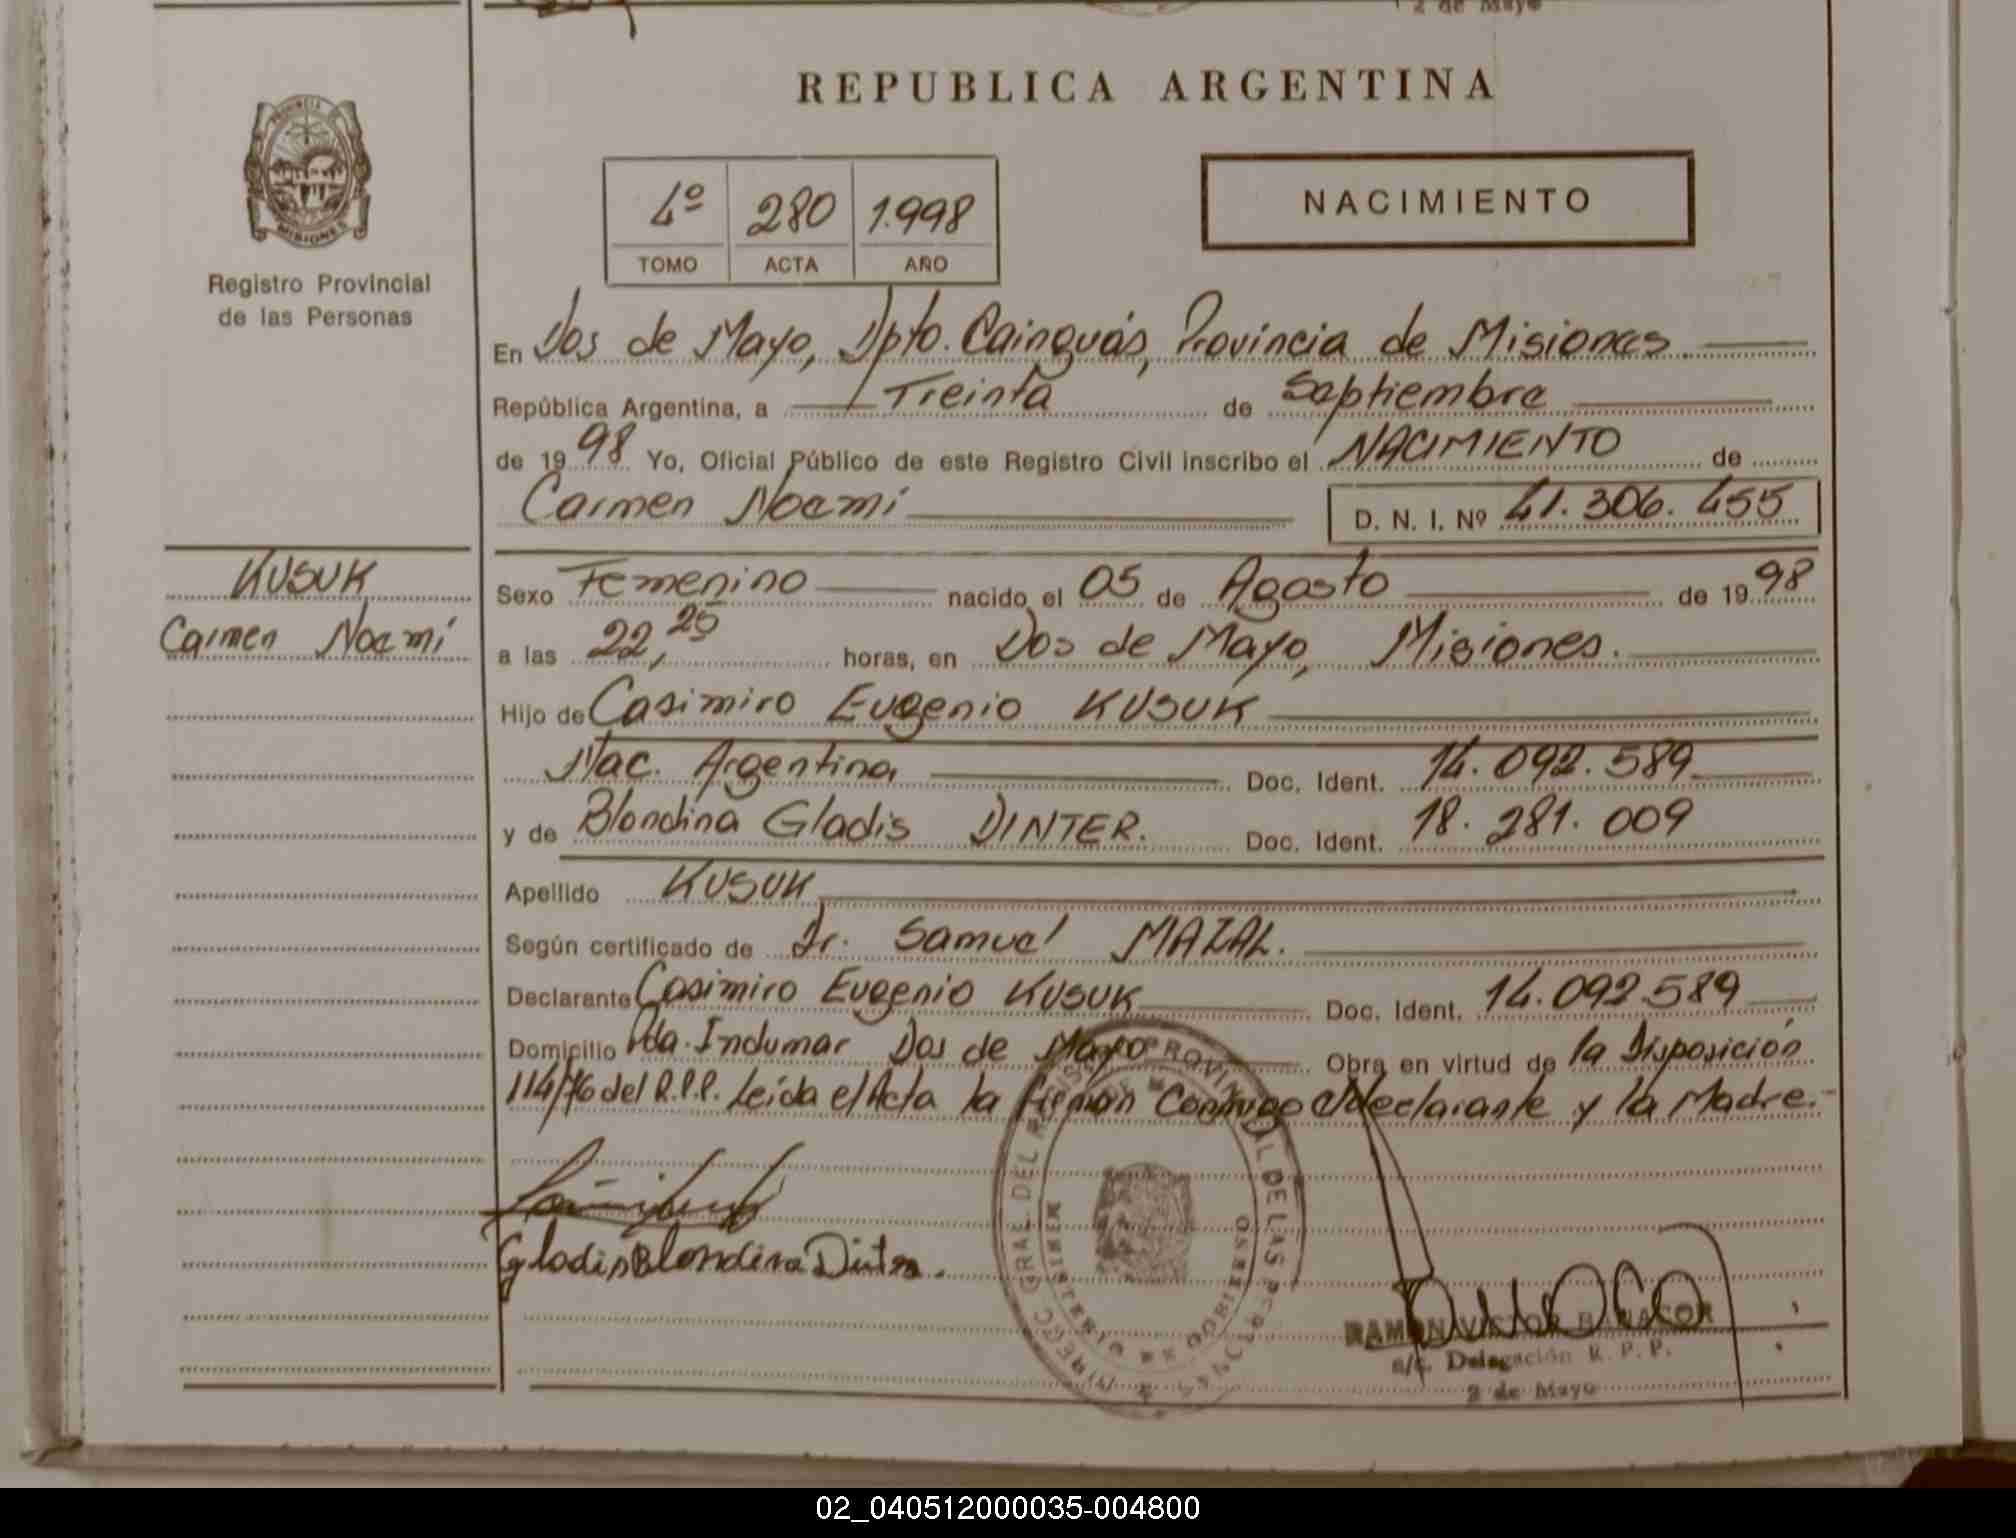 2 de Mayo
REPUBLICA ARGENTINA
PROVINCIA
MISIONES
Registro Provincial
de las Personas
4º 280 1.998
TOMO ACTA AÑO
NACIMIENTO
En Dos de Mayo, Dpto. Cainguás, Provincia de Misiones
República Argentina, a Treinta de Septiembre
de 1998 Yo, Oficial Público de este Registro Civil inscribo el NACIMIENTO de
Carmen Noemi D. N. I. Nº 41.306.455
KUSUK
Carmen Noemí
Sexo Femenino nacido el 05 de Agosto de 1998
a las 22,25 horas, en Dos de Mayo, Misiones.
Hijo de Casimiro Eugenio KUSUK
Nac. Argentina Doc. Ident. 14.092.589
y de Blondina Gladis DINTER. Doc. Ident. 18.281.009
Apellido KUSUK
Según certificado de Dr. Samuel MAZAL.
Declarante Casimiro Eugenio KUSUK Doc. Ident. 14.092.589
Domicilio Pda. Indumar Dos de Mayo Obra en virtud de la Disposición
114/76 del R.P.P. Leída el Acta la Firman Conmigo el declarante y la Madre.-
Gladis Blondina Dinter.
RAMON VICTOR
a/c. Delegación R. P. P.
2 de Mayo
02_040512000035-004800